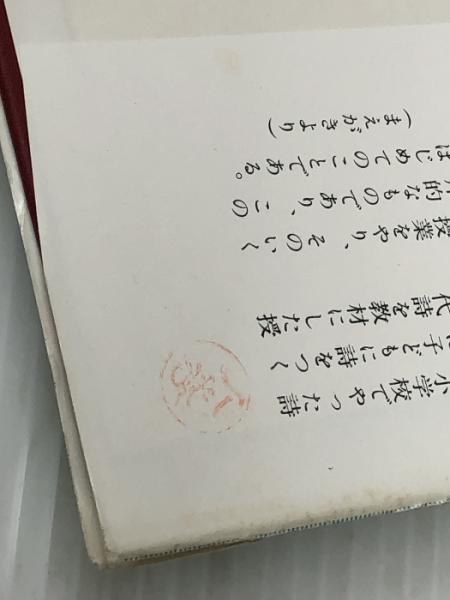 小学校でやった詩
は子どもに詩をつく
代詩を教材にした授
授業をやり、そのいく
的なものであり、この
はじめてのことである。
（まえがきより）